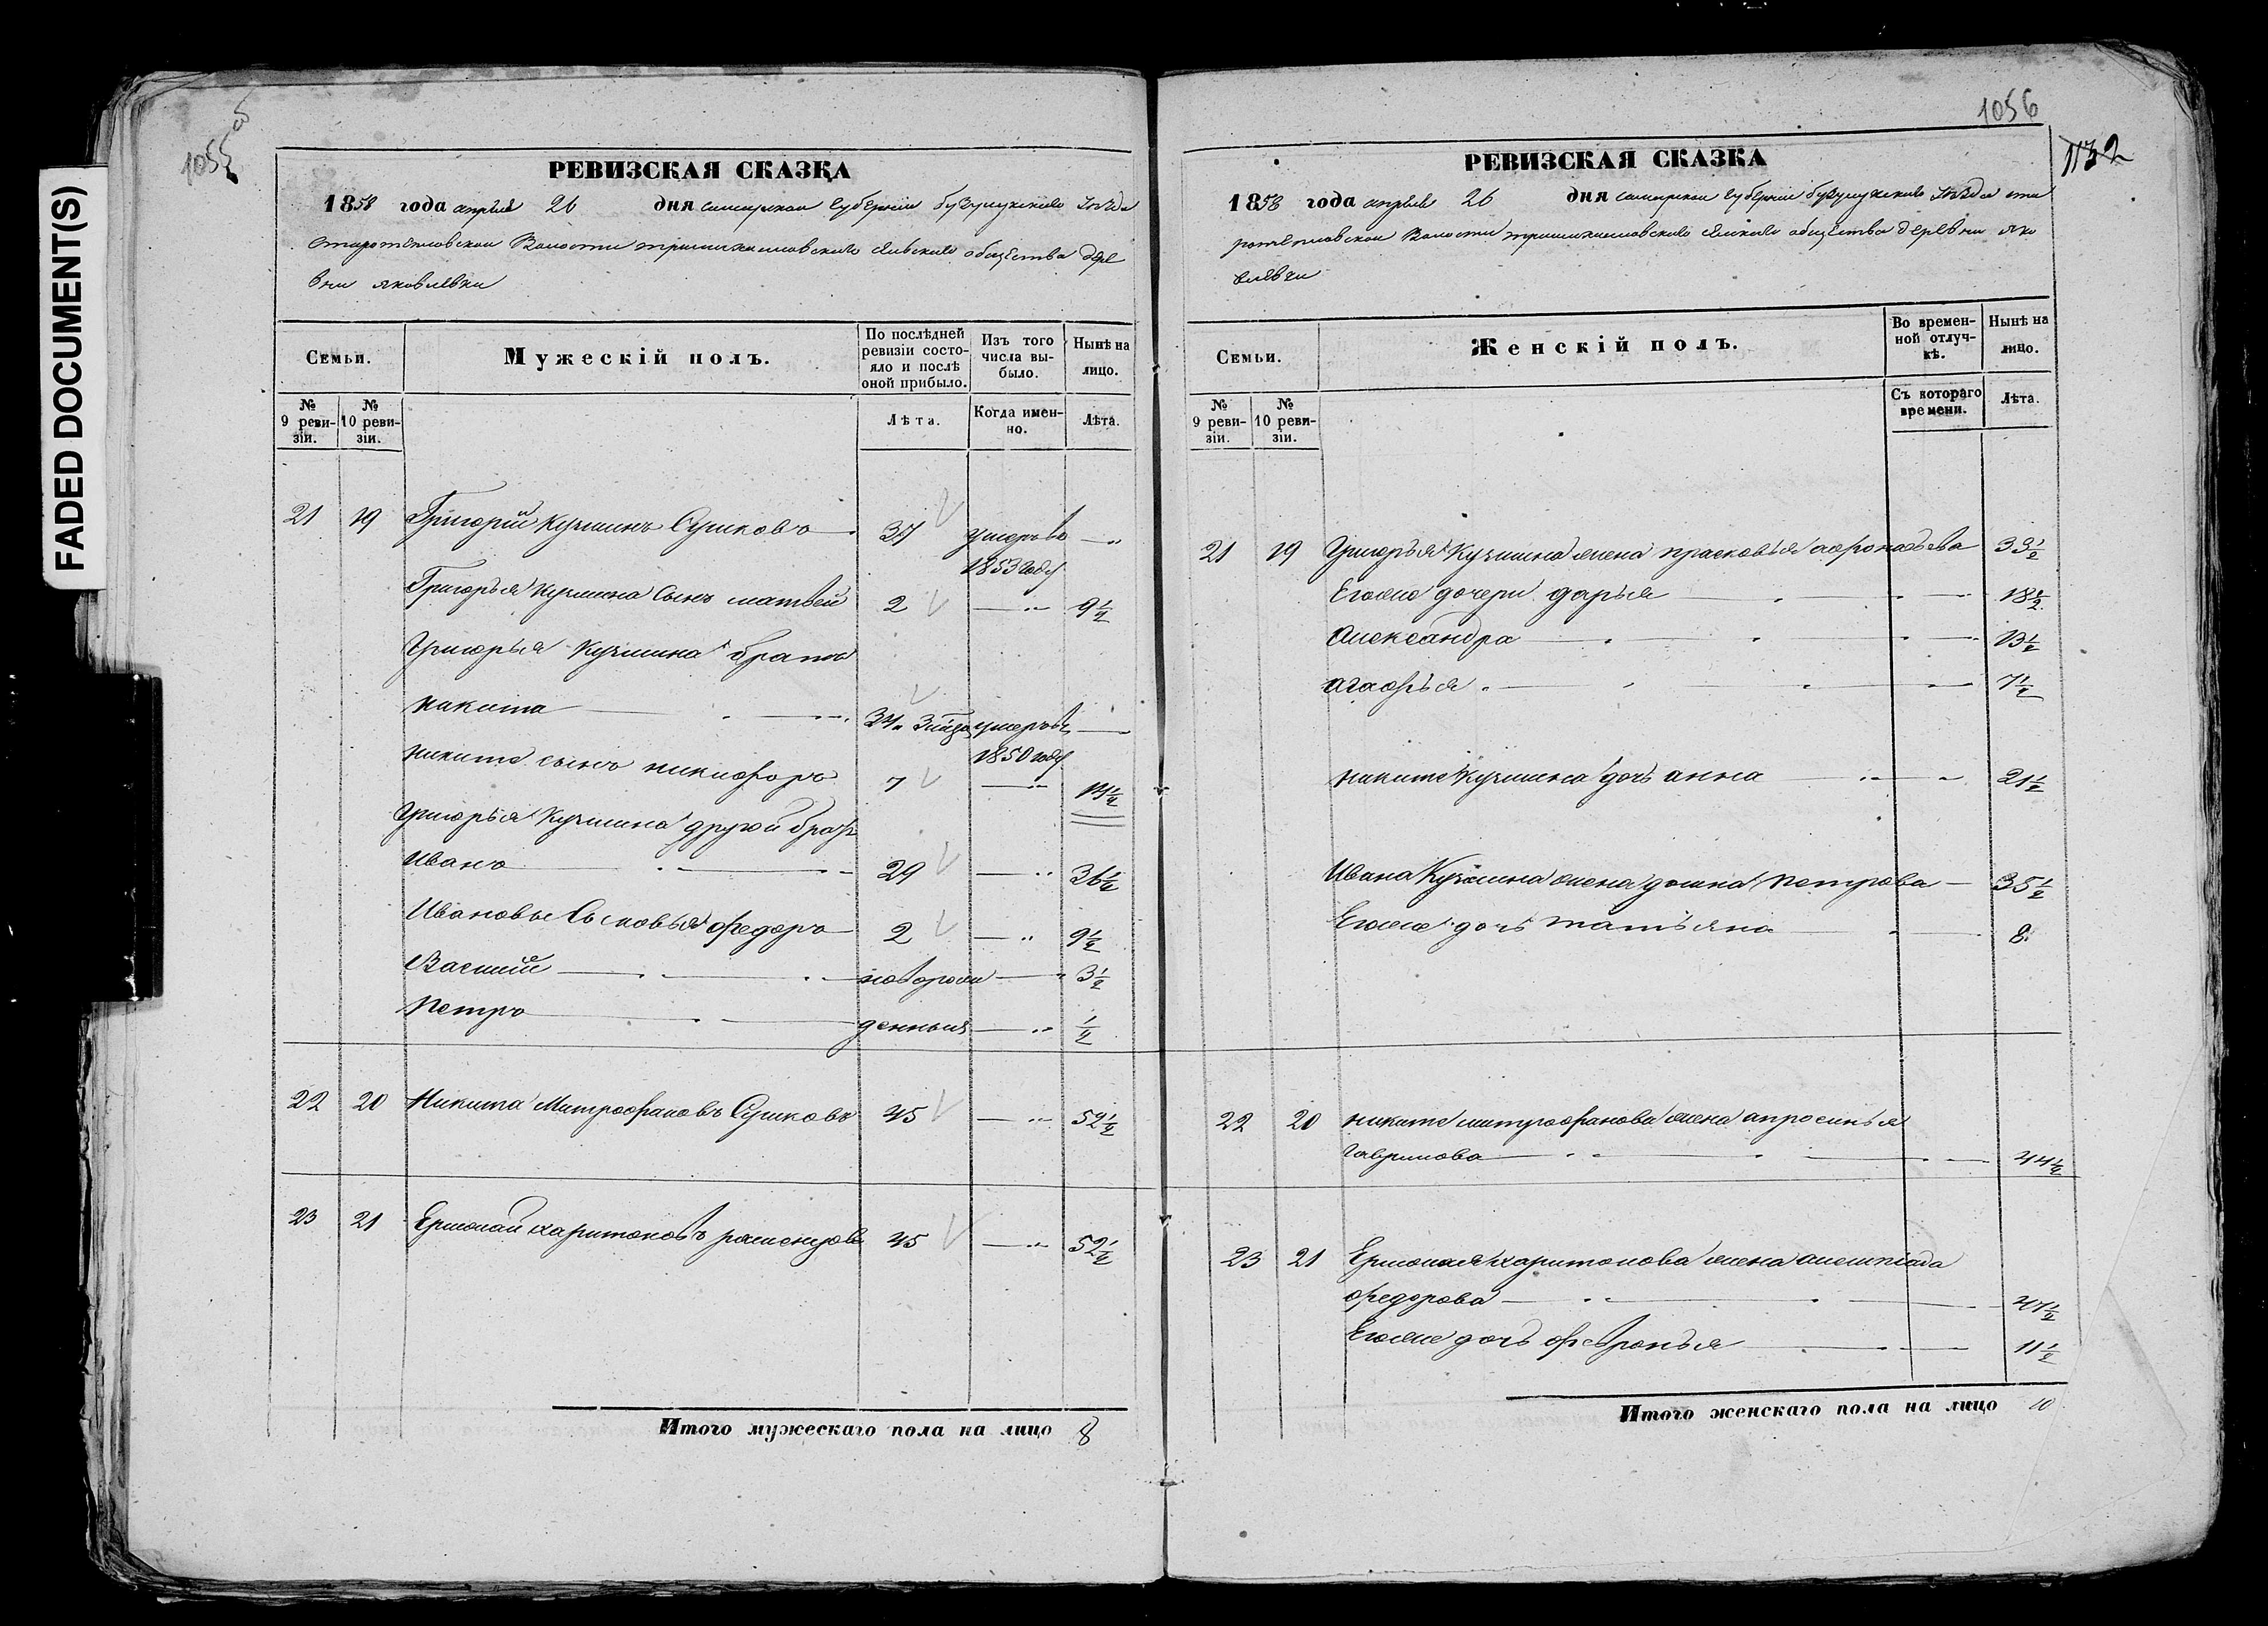 FADED DOCUMENT(S)
1055
РЕВИЗСКАЯ СКАЗКА
1858 года апреля 26 дня самарской губернии бузулукского уезда
старотепловской Волости общества дере
вни яковлевки
Семьи.
Мужескій полъ.
По послѣдней ревизіи состояло и послѣ оной прибыло.
Изъ того числа выбыло.
Нынѣ на лицо.
№ 9 ревизіи.
№ 10 ревизіи.
Лѣта.
Когда именно.
Лѣта.
21 19 Григорий Кузминъ Сушковъ 37 умеръ въ —
1853 году
Григорья Кузмина Сынъ матвей 2 — 9 ½
Григорья Кузмина братъ
никита 34 умеръ въ —
1850 году
никиты сынъ никифоръ 7 — 14 ½
Григорья Кузмина другой братъ
Иванъ 29 — 36 ½
Ивановы Сыновья федоръ 2 — 9 ½
Василий новорож — 3 ½
Петръ денныя — ½
22 20 Никита Митрофановъ Сушковъ 45 — 52 ½
23 21 Ермолай харитоновъ 45 — 52 ½
Итого мужескаго пола на лицо 8
1056
1132
РЕВИЗСКАЯ СКАЗКА
1858 года апреля 26 дня самарской губернии бузулукского уезда ста
ротепловской Волости общества деревни яко
влевки
Семьи.
Женскій полъ.
Во временной отлучкѣ.
Нынѣ на лицо.
№ 9 ревизіи.
№ 10 ревизіи.
Съ котораго времени.
Лѣта.
21 19 Григорья Кузмина жена прасковья 33 ½
Егоже дочери дарья 18 ½
Александра 13 ½
агафья 7 ½
никиты Кузмина дочь анна 21 ½
Ивана Кузмина жена домна Петрова 35 ½
Егоже дочь татьяна 8
22 20 никиты митрофанова жена апросинья
Гаврилова 44 ½
23 21 Ермолая харитонова жена
федорова 47 ½
Егоже дочь февронья 11 ½
Итого женскаго пола на лицо 10